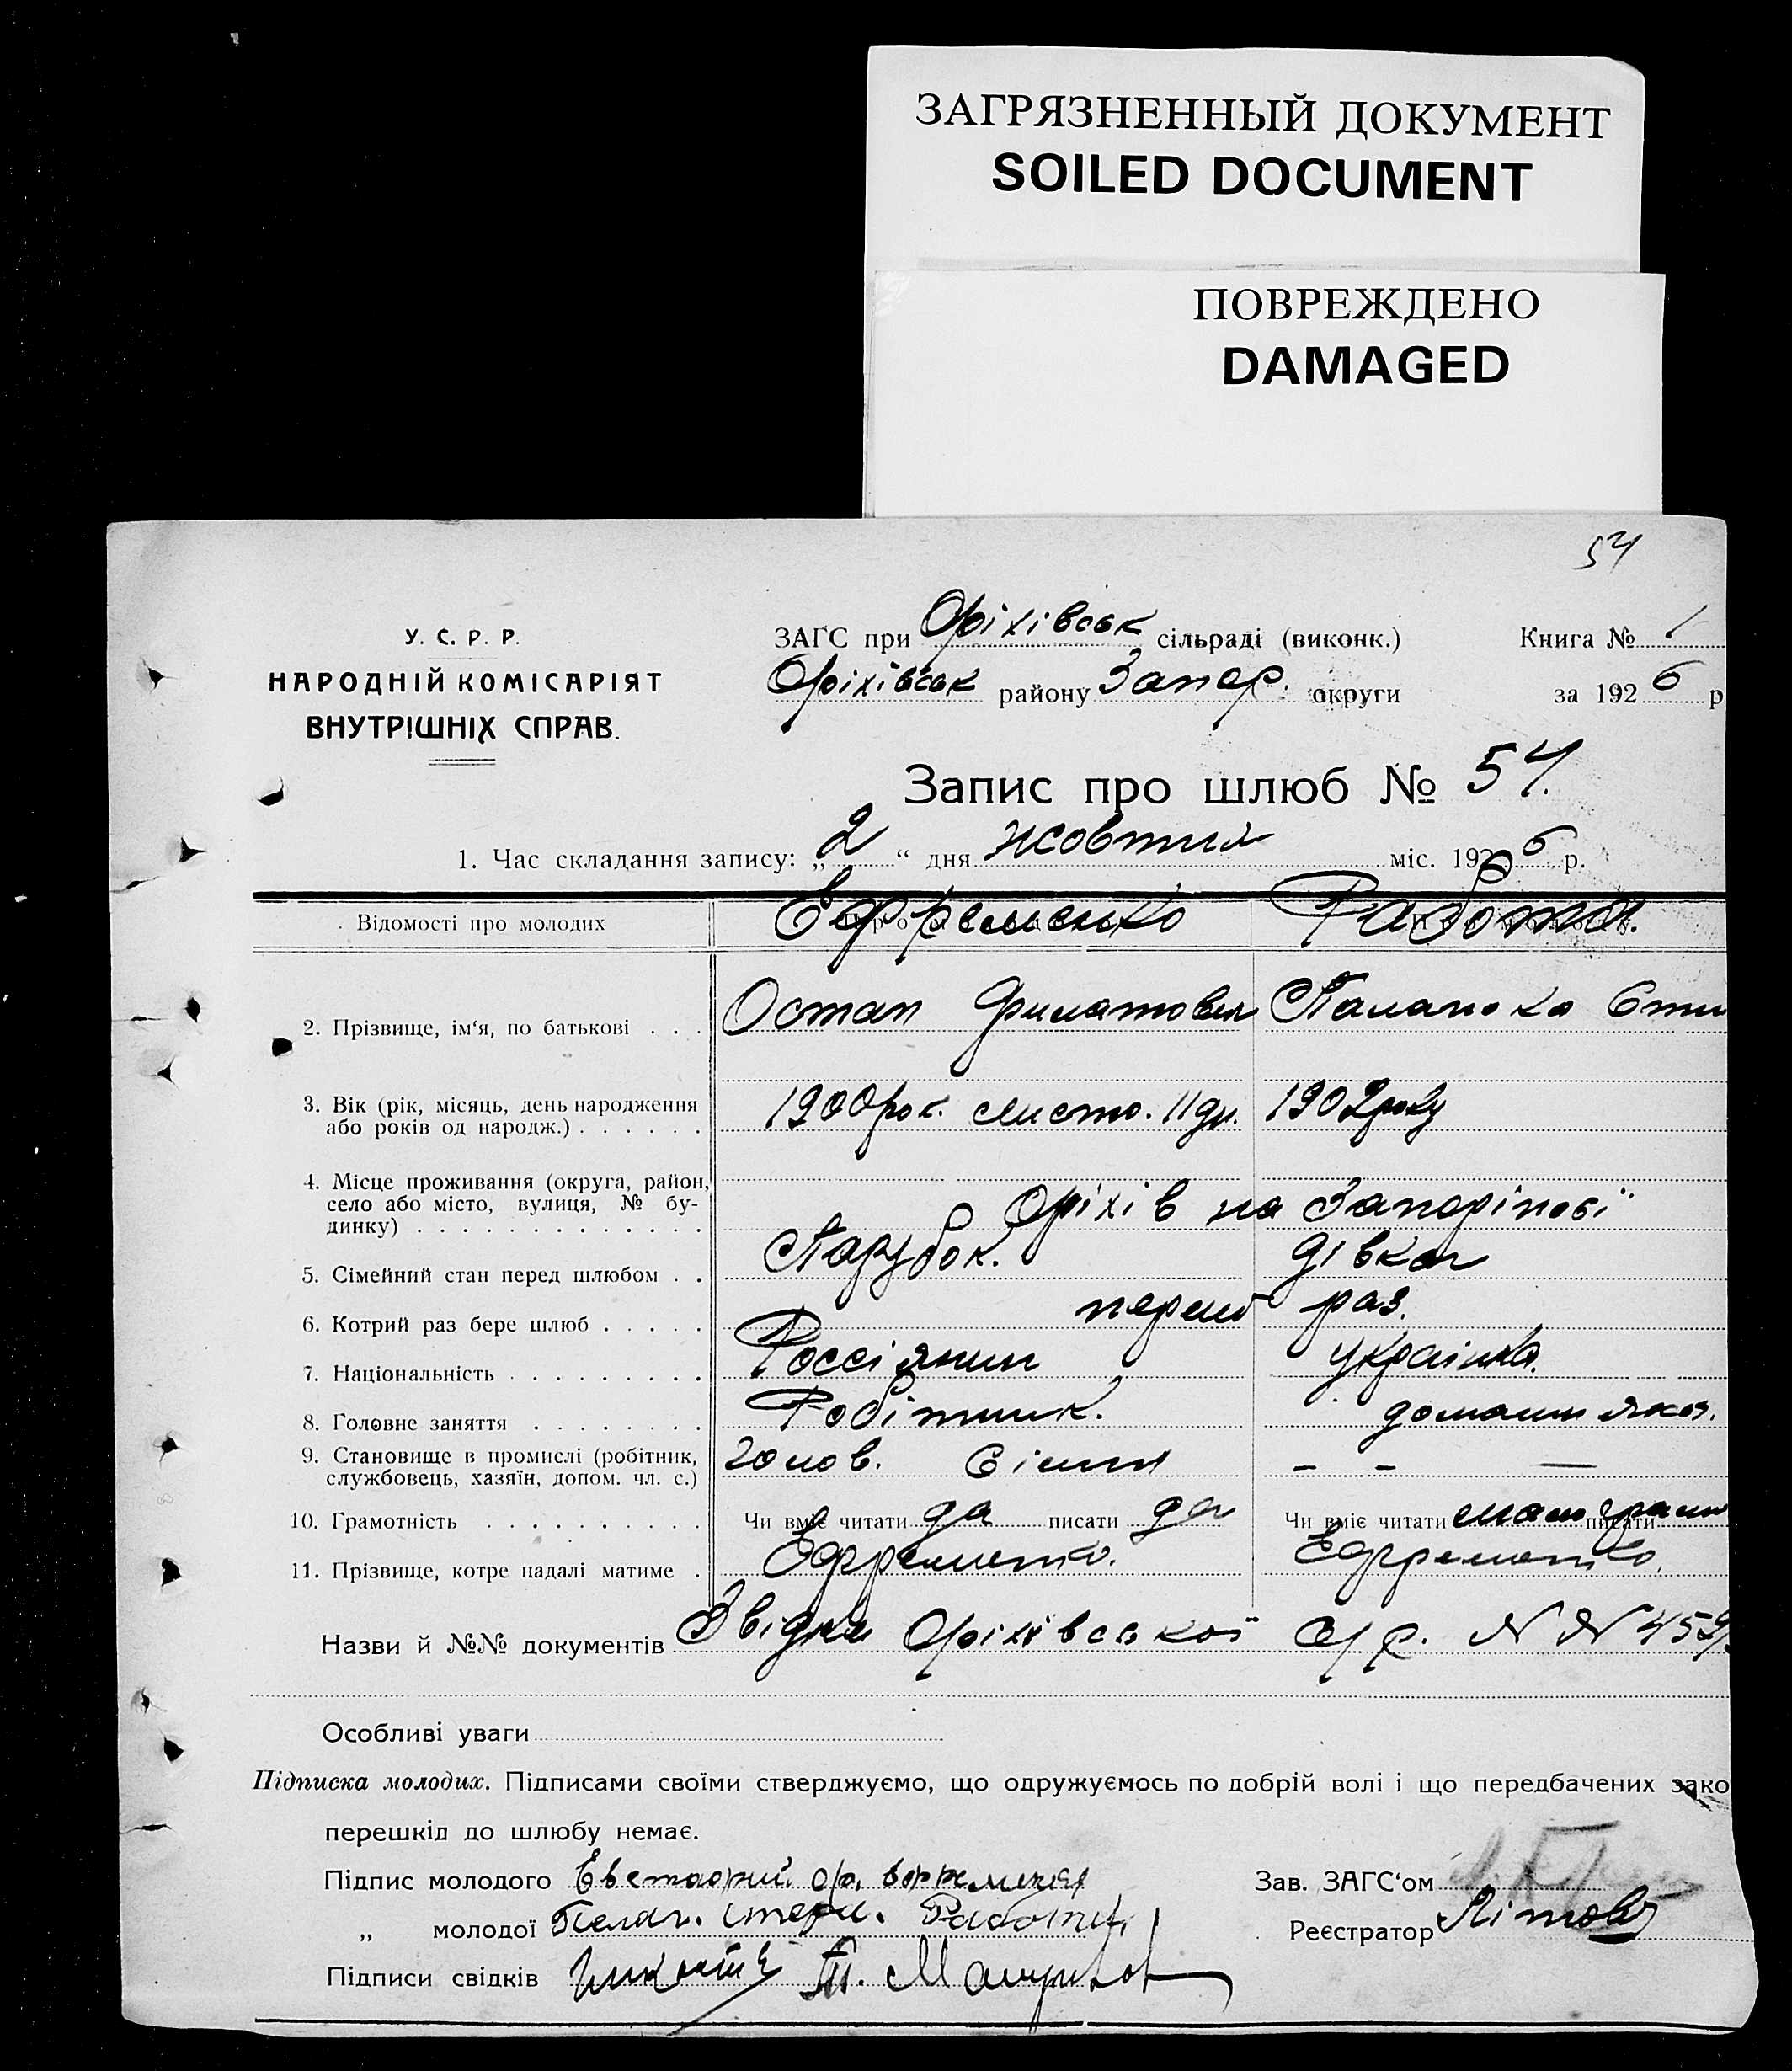 ЗАГРЯЗНЕННЫЙ ДОКУМЕНТ
SOILED DOCUMENT
ПОВРЕЖДЕНО
DAMAGED
У. С. Р. Р.
НАРОДНІЙ КОМІСАРІЯТ
ВНУТРІШНІХ СПРАВ.
ЗАГС при Оріхівськ сільраді (виконк.) Книга № 1
Оріхівськ району Запор. округи за 1926 р
Запис про шлюб №
1. Час складання запису: „2“ дня жовтня міс. 1926 р.
Відомості про молодих Ефременко Работа.
2. Прізвище, ім‘я, по батькові . . . Остап Филатович
3. Вік (рік, місяць, день народження 1900 рок. листо. 11 дн. 1902 року
або років од народж.) . . . . . .
4. Місце проживання (округа, район,
село або місто, вулиця, № бу- Оріхів на Запоріжжі
динку) . . . . . . . . . . . . .
5. Сімейний стан перед шлюбом . . Парубок. дівка
6. Котрий раз бере шлюб . . . . . перший раз.
7. Національність . . . . . . . . . Россіянин українка.
8. Головне заняття . . . . . . . . Робітник.
9. Становище в промислі (робітник, голов. сімьи – – —
службовець, хазяїн, допом. чл. с.)
10. Грамотність . . . . . . . . . . Чи вміє читати да писати да Чи вміє читати мало грамо писати
11. Прізвище, котре надалі матиме . Ефременко. Ефременко.
Назви й №№ документів Звідки Оріхівської
Особливі уваги
Підписка молодих. Підписами своїми стверджуємо, що одружуємось по добрій волі і що передбачених зако
перешкід до шлюбу немає.
Підпис молодого Зав. ЗАГС‘ом
„ молодої Пелаг. Работа Реєстратор
Підписи свідків